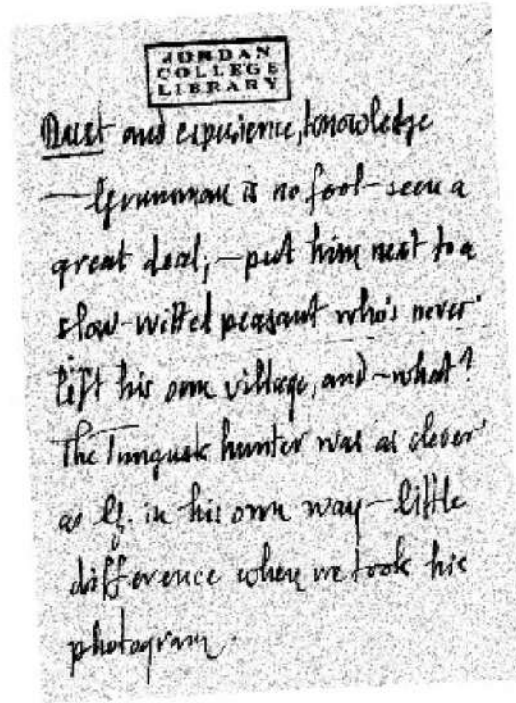 JORDAN
COLLEGE
LIBRARY
Dust and experience, knowledge
—Grumman is no fool—seen a
great deal;—put him next to a
slow-witted peasant who's never
left his own village, and—what?
The Tungusk hunter was as clever
as G. in his own way—little
difference when we took his
photogram.